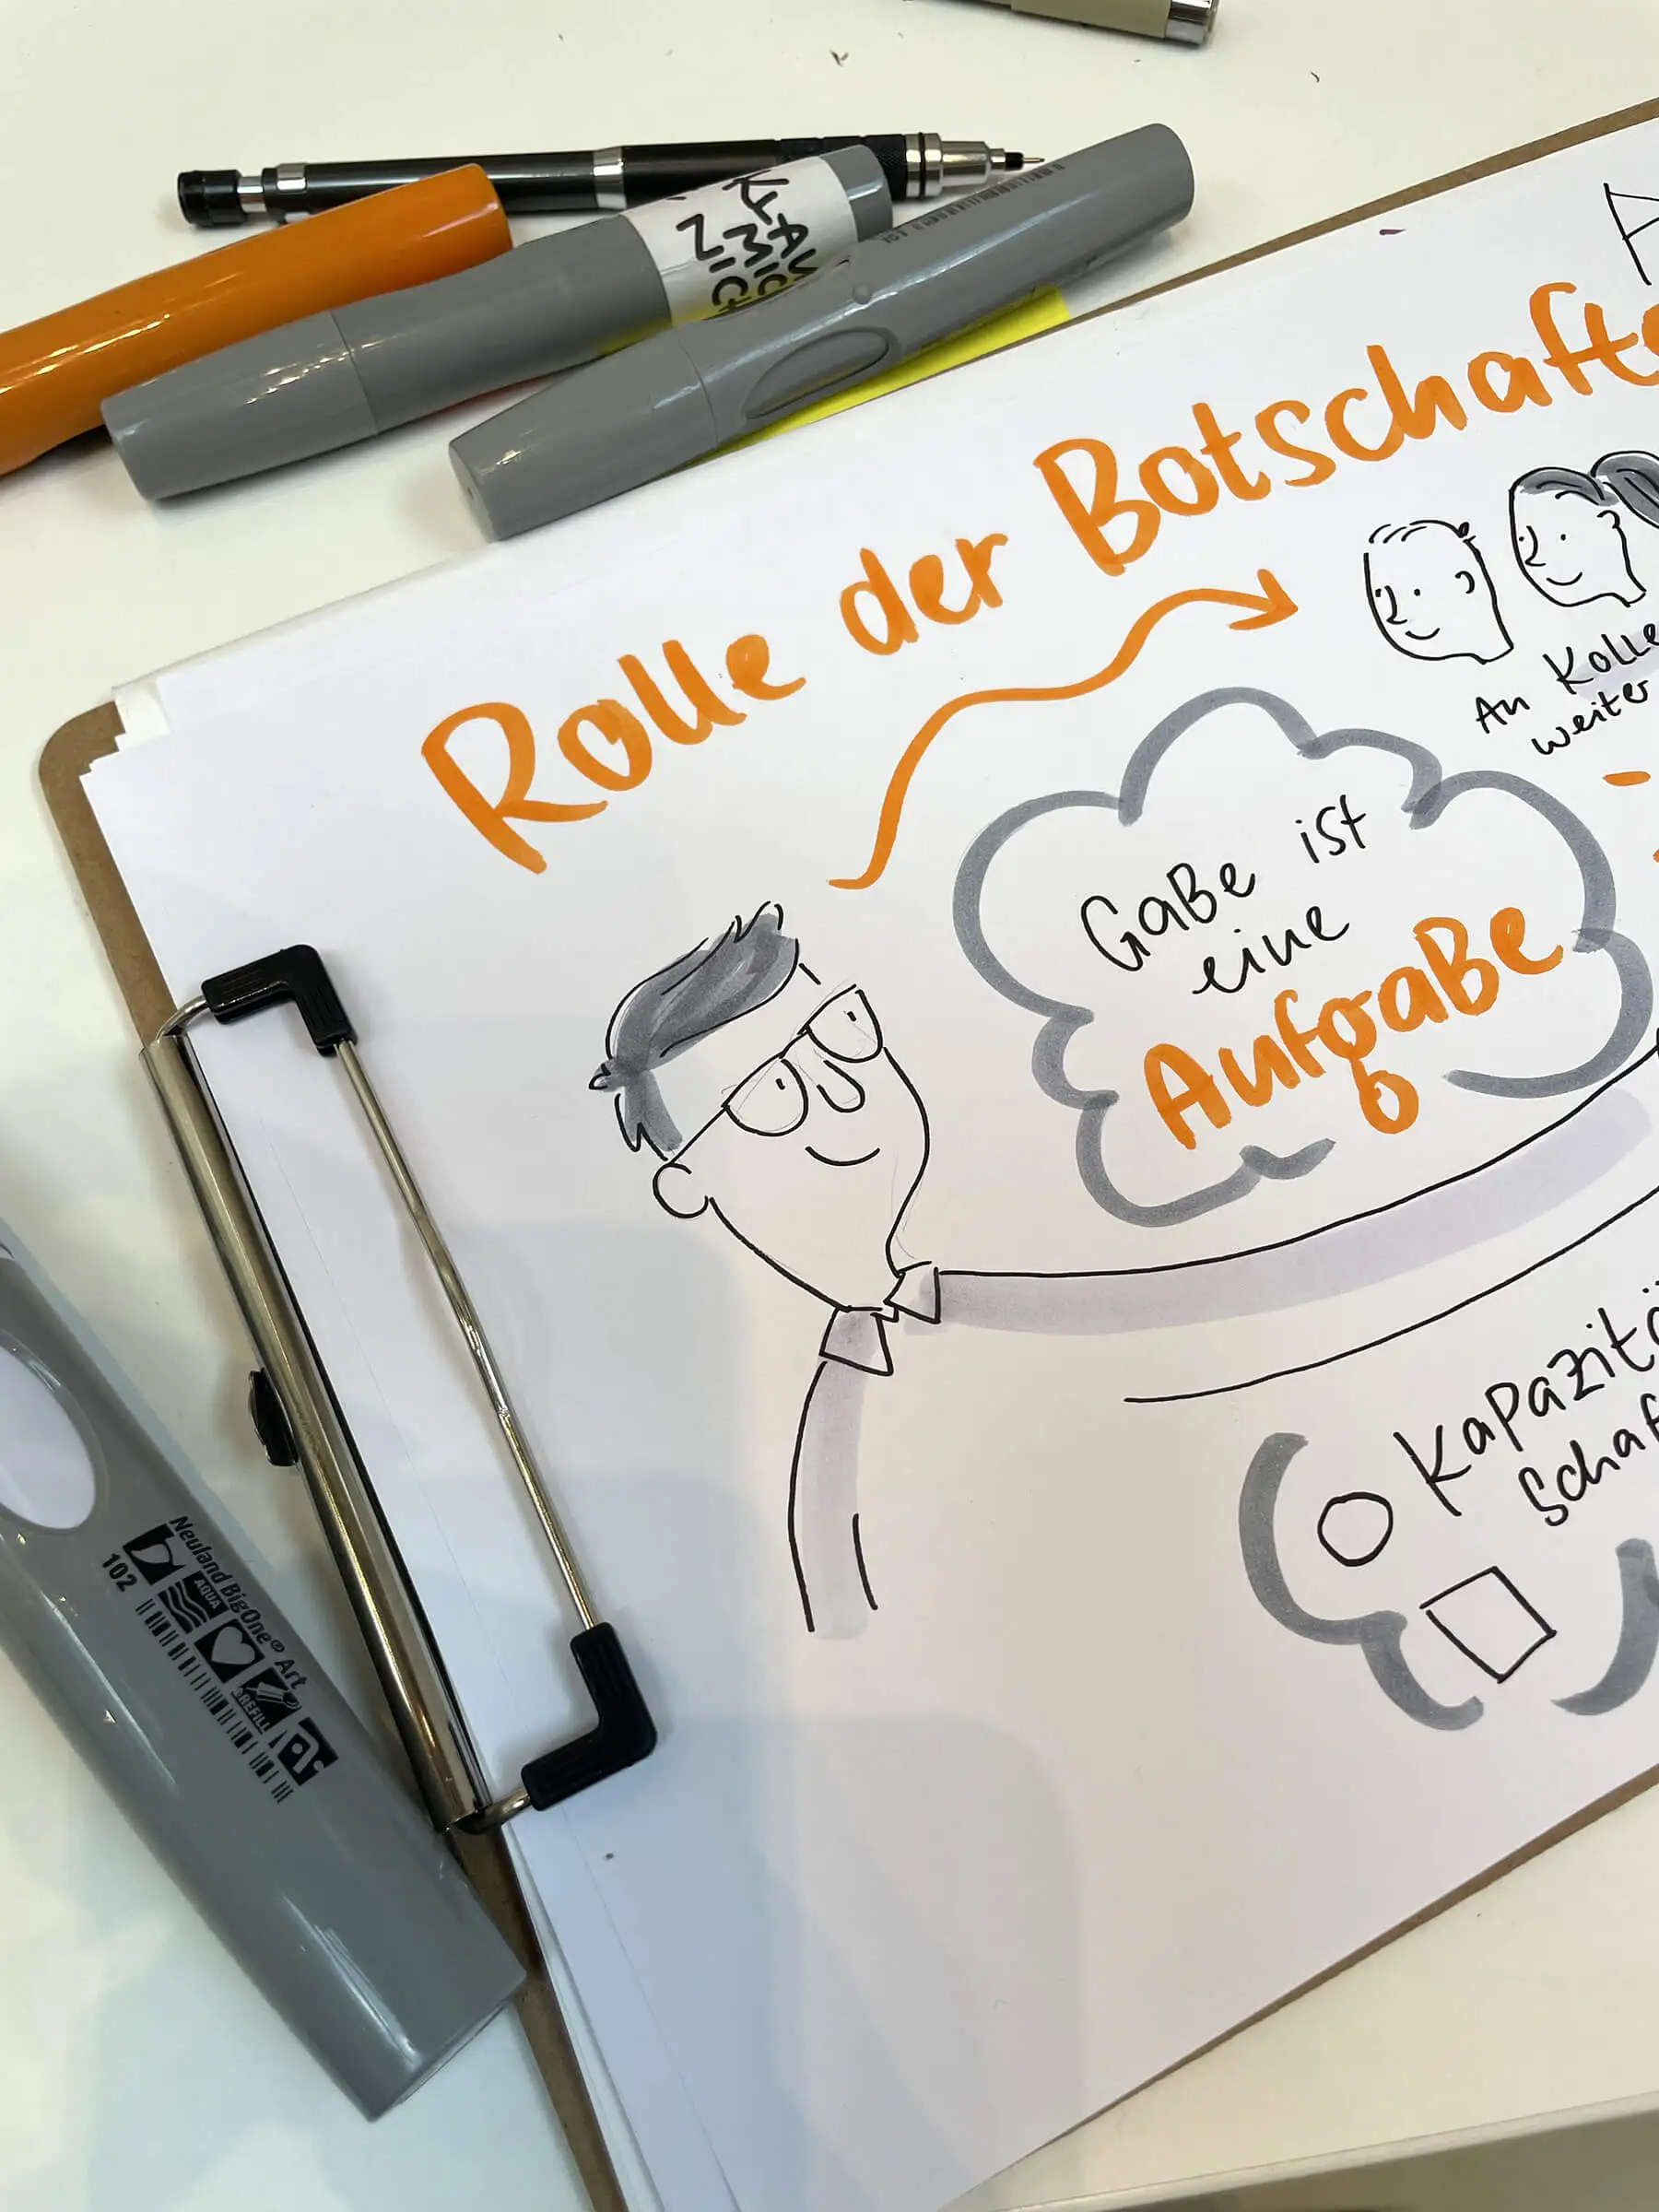 KLAU
MIC
NICH
A
Rolle der Botschafte
An Kolle
weiter
GaBe ist
eine
AufgaBe
Kapazitä
Schaf
Neuland BigOne® Art
102
AQUA
REFILL